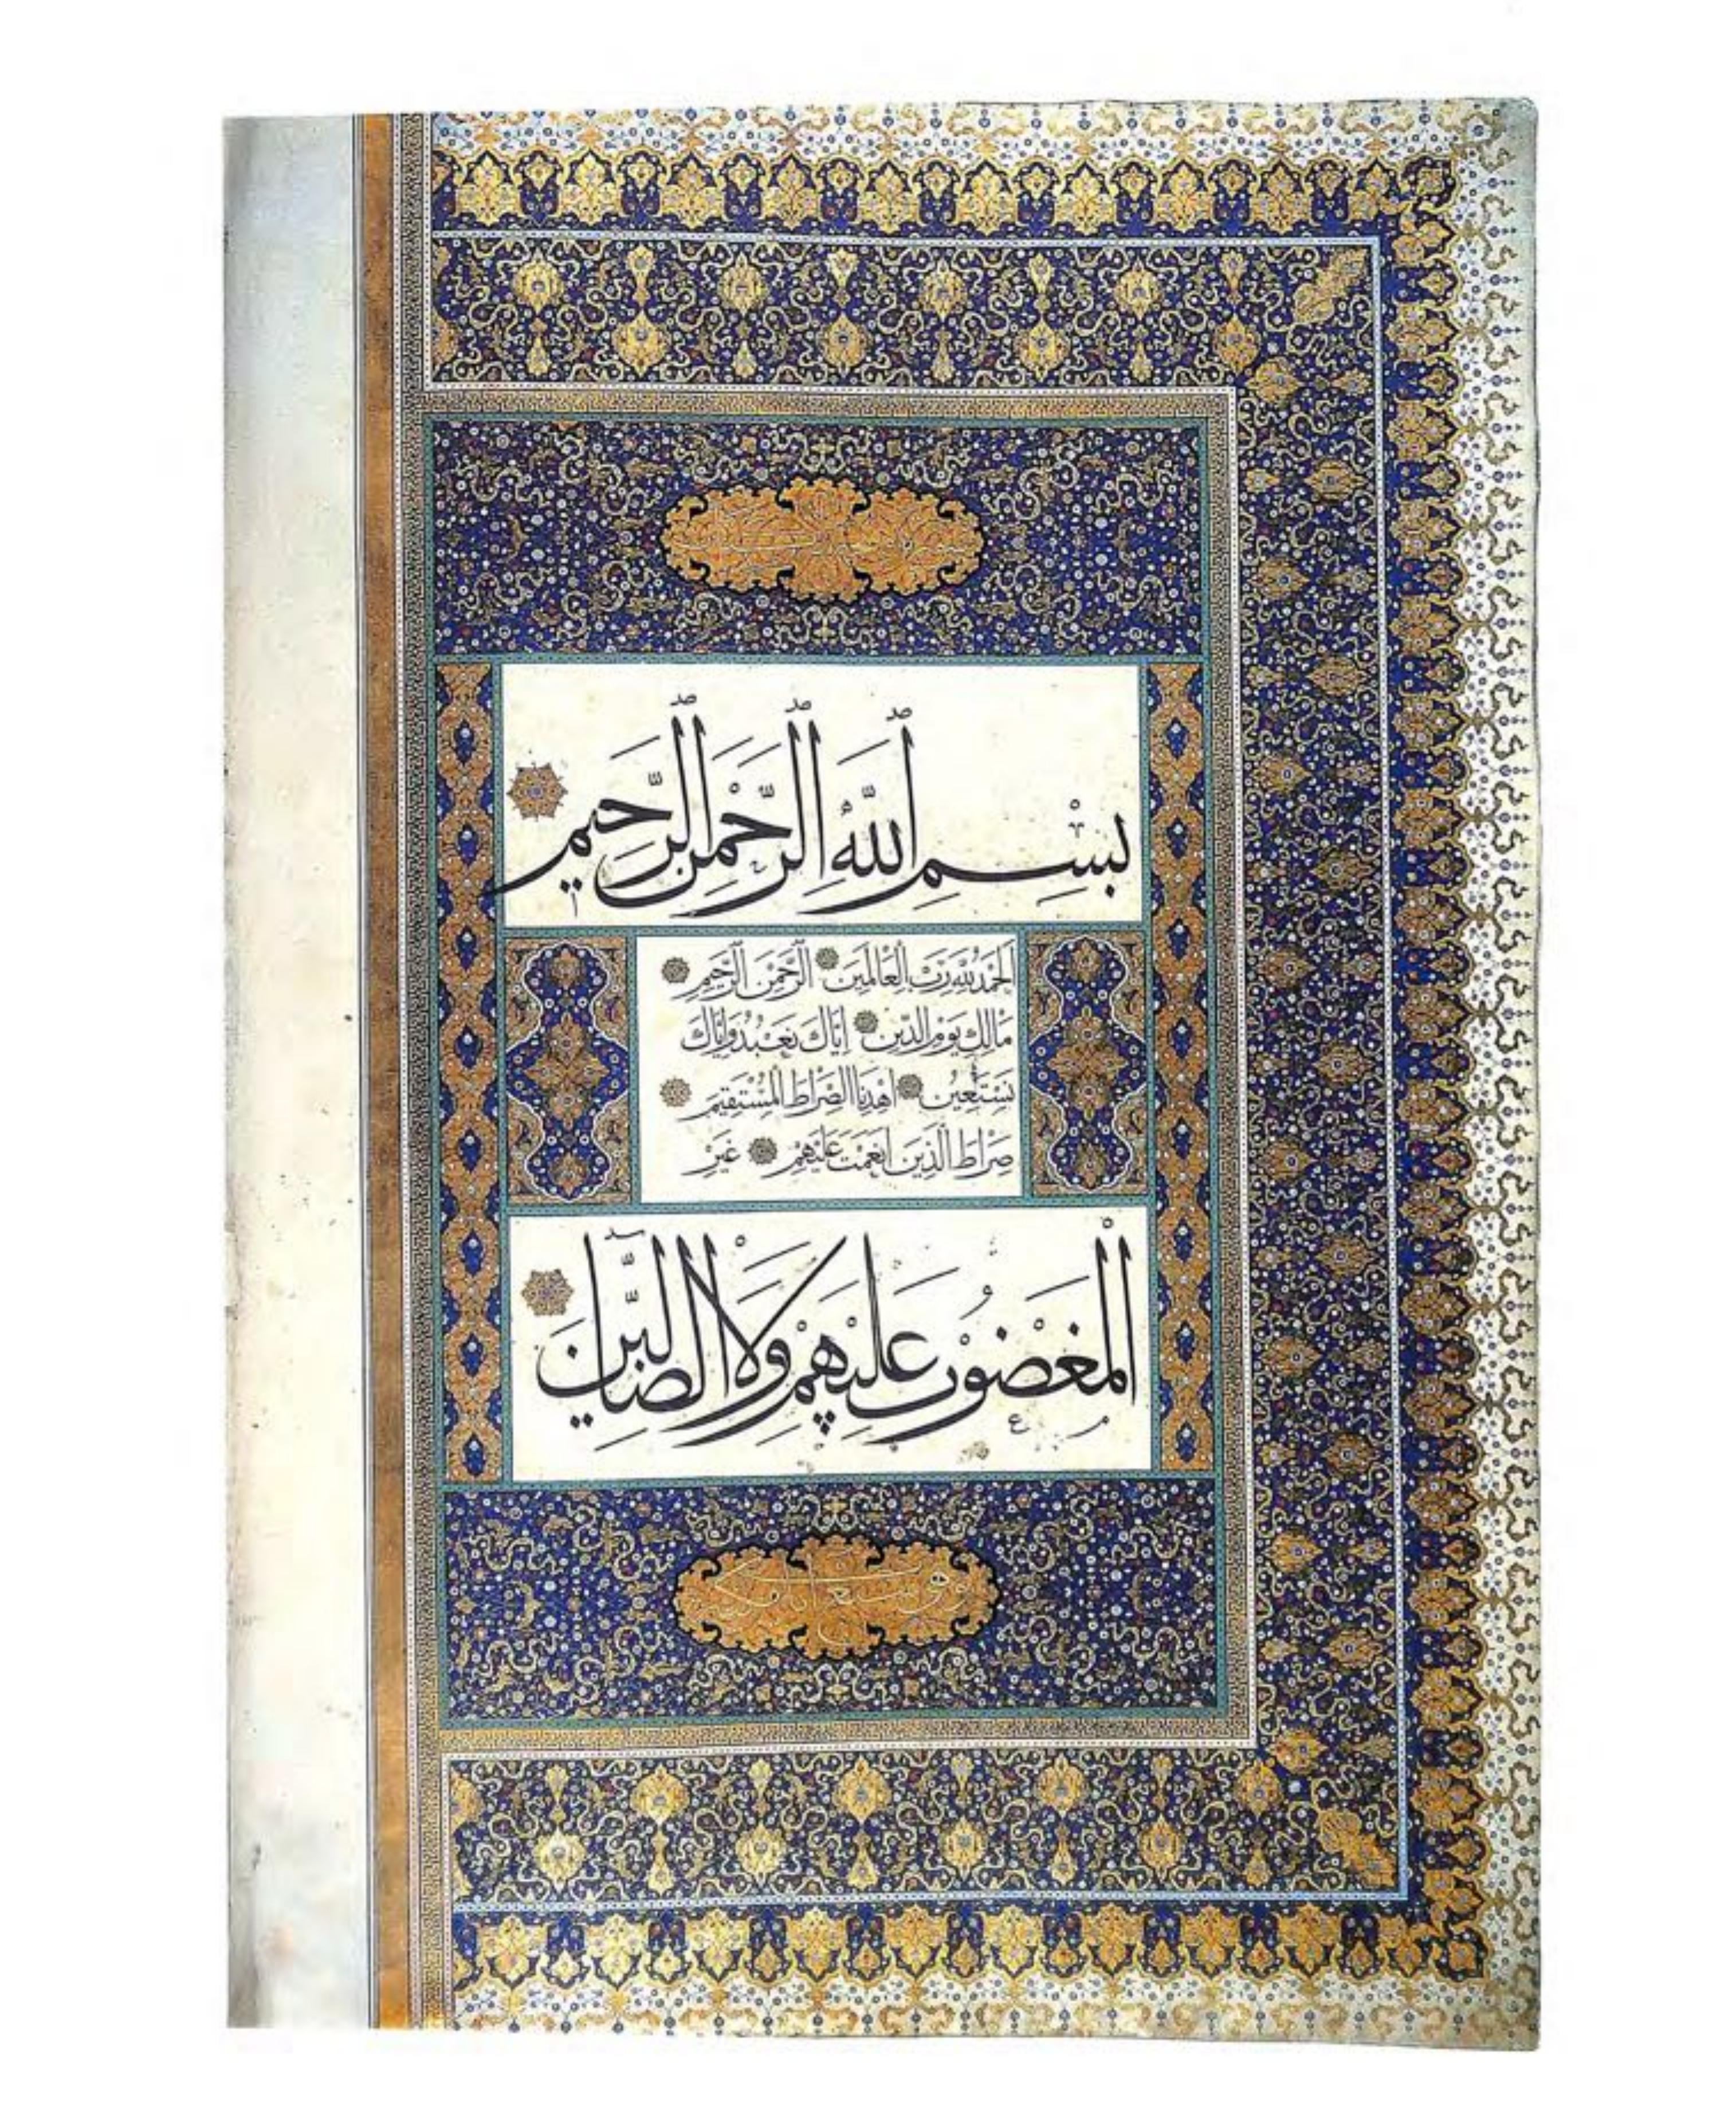 بِسْمِ اللَّهِ الرَّحْمَٰنِ الرَّحِيمِ
اَلْحَمْدُ لِلَّهِ رَبِّ الْعَالَمِينَ الرَّحْمَنِ الرَّحِيمِ
مَالِكِ يَوْمِ الدِّينِ اِيَّاكَ نَعْبُدُ وَاِيَّاكَ
نَسْتَعِينُ اِهْدِنَا الصِّرَاطَ الْمُسْتَقِيمَ
صِرَاطَ الَّذِينَ اَنْعَمْتَ عَلَيْهِمْ غَيْرِ
الْمَغْضُوبِ عَلَيْهِمْ وَلَا الضَّالِّينَ